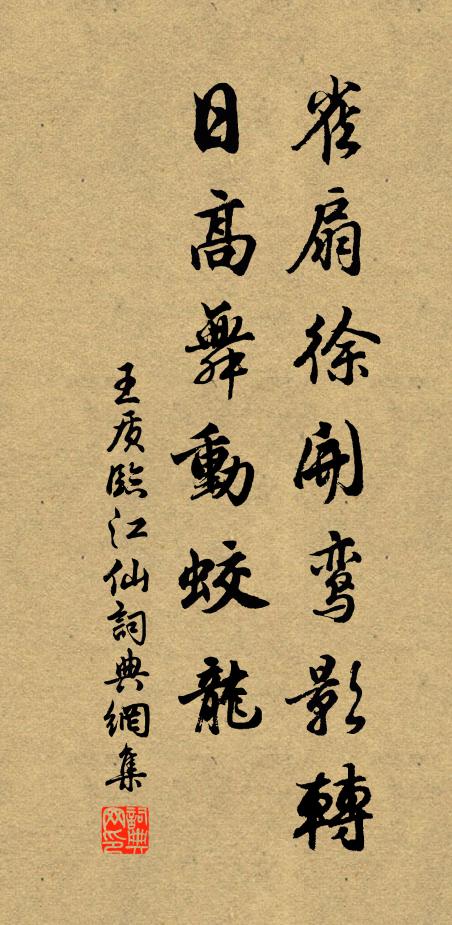 雀扇徐開鸾影轉
日高舞動蛟龍
王质臨江仙詞典網集
詞典网印